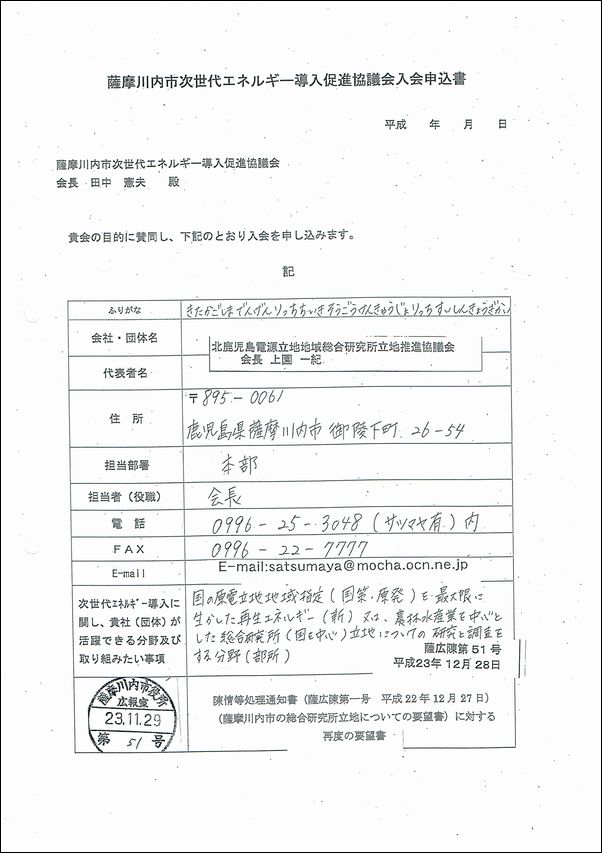 薩摩川内市次世代エネルギー導入促進協議会入会申込書
平成　年　月　日
薩摩川内市次世代エネルギー導入促進協議会
会長　田中　憲夫　殿
貴会の目的に賛同し、下記のとおり入会を申し込みます。
記
ふりがな　きたかごしまでんげんりっちちいきそうごうけんきゅうじょりっちすいしんきょうぎかい
会社・団体名　北鹿児島電源立地地域総合研究所立地推進協議会
代表者名　会長 上園 一紀
住所　〒895-0061
鹿児島県薩摩川内市御陵下町 26-54
担当部署　本部
担当者（役職）　会長
電話　0996-25-3048（サツマヤ有.）内
FAX　0996-22-7777
E-mail　E-mail:satsumaya@mocha.ocn.ne.jp
次世代エネルギー導入に
関し、貴社（団体）が
活躍できる分野及び
取り組みたい事項
国の原電立地地域指定（国策・原発）を最大限に
生かした再生エネルギー（新）又は、農林水産業を中心と
した総合研究所（国を中心）立地についての研究と調査を
する分野（部所）
薩広陳第51号
平成23年12月28日
薩摩川内市役所
広報室
23.11.29
第 51 号
陳情等処理通知書（薩広陳第一号　平成22年12月27日）
（薩摩川内市の総合研究所立地についての要望書）に対する
再度の要望書